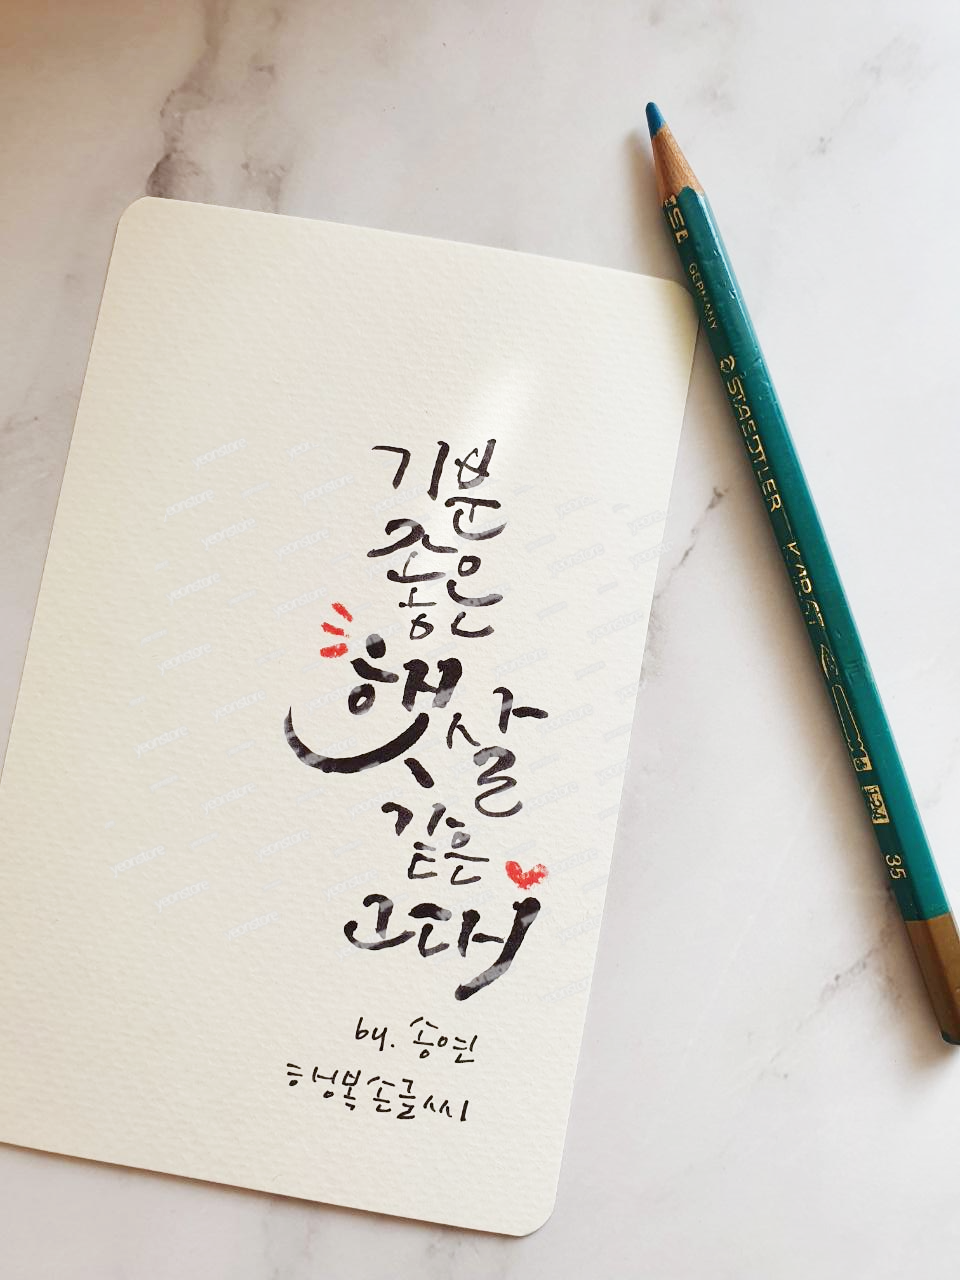 기분
좋은
햇살
같은
그대
by. 송연
행복손글씨
GERMANY
STAEDTLER
35